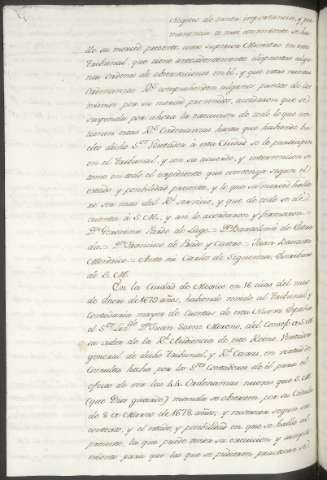 negocio de tanta importancia, y per
manencia lo que conveniente se ha-
lle su merced presente como Supremo Ministro en este
Tribunal, que tiene antecedentemente algunas
ordenes de observaciones en él, y que estas nuevas
Ordenanzas Rs. comprehenden algunos puntos de los
mismos por su merced prevenidos, acordaron que se
suspenda por ahora la execucion de todo lo que con-
tienen estas Rs. Ordenanzas hasta que habiendo bu-
elto dicho Sor. Visitador a esta Ciudad se le participen
en el Tribunal, y con su acuerdo, y intervencion se
tome en todo el expediente que convenga segun el
estado y posibilidad presente, y lo que su merced halla-
re ser mas del Rl. servicio, y que de todo se dé
cuenta á S. M., y asi lo acordaron y firmaron.=
Dn. Geronimo Pardo de Lago= Dn. Bartolomé de
da.= Dn. Francisco de Prado y Castro= Juan Bautista
Mendrice.= Ante mi Carlos de Siguenza. Escribano
de S. M.
En la Ciudad de Mexico en 16 dias del mes
de Enero de 1679 años, habiendo venido al Tribunal y
Contaduria mayor de Cuentas de esta Nueva España
el Sor. Ldo. Dn. Juan Saenz Moreno, del Consejo de S. M.
su oidor de la Rl. Audiencia de este Reino, Visitador
general de dicho Tribunal, y Rs. Caxas, en virtud de
Consulta hecha por los Sres. Contadores de él para el
efecto de ver las 44 Ordenanzas nuevas que S. M.
(que Dios guarde) manda se observen por su Cédula
de 8 de Marzo de 1678 años, y reconocer segun su
contexto, y el estado, y posibilidad en que se halla al
presente, la que puede tener su execucion y cumpli-
miento para que las que se pudieren practicar se